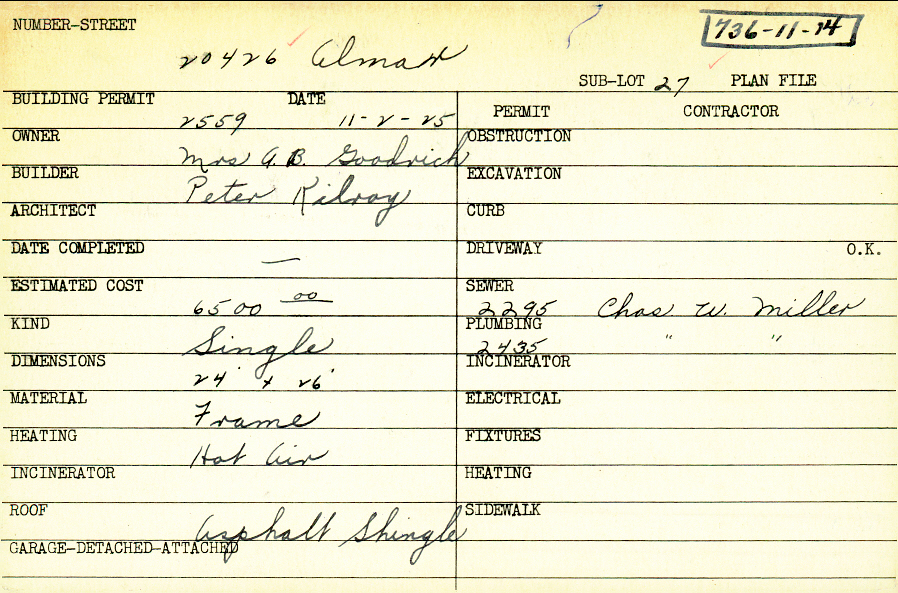 NUMBER-STREET
736-11-14
20426 Almar
SUB-LOT 27 PLAN FILE
BUILDING PERMIT 2559 DATE 11-2-25
PERMIT CONTRACTOR
OWNER Mrs A. B. Goodrich
OBSTRUCTION
BUILDER Peter Kilroy
EXCAVATION
ARCHITECT
CURB
DATE COMPLETED —
DRIVEWAY O.K.
ESTIMATED COST 6500 00
SEWER 2295 Chas W. Miller
KIND Single
PLUMBING 2435 " "
DIMENSIONS 24' x 26'
INCINERATOR
MATERIAL Frame
ELECTRICAL
HEATING Hot Air
FIXTURES
INCINERATOR
HEATING
ROOF Asphalt Shingle
SIDEWALK
GARAGE-DETACHED-ATTACHED